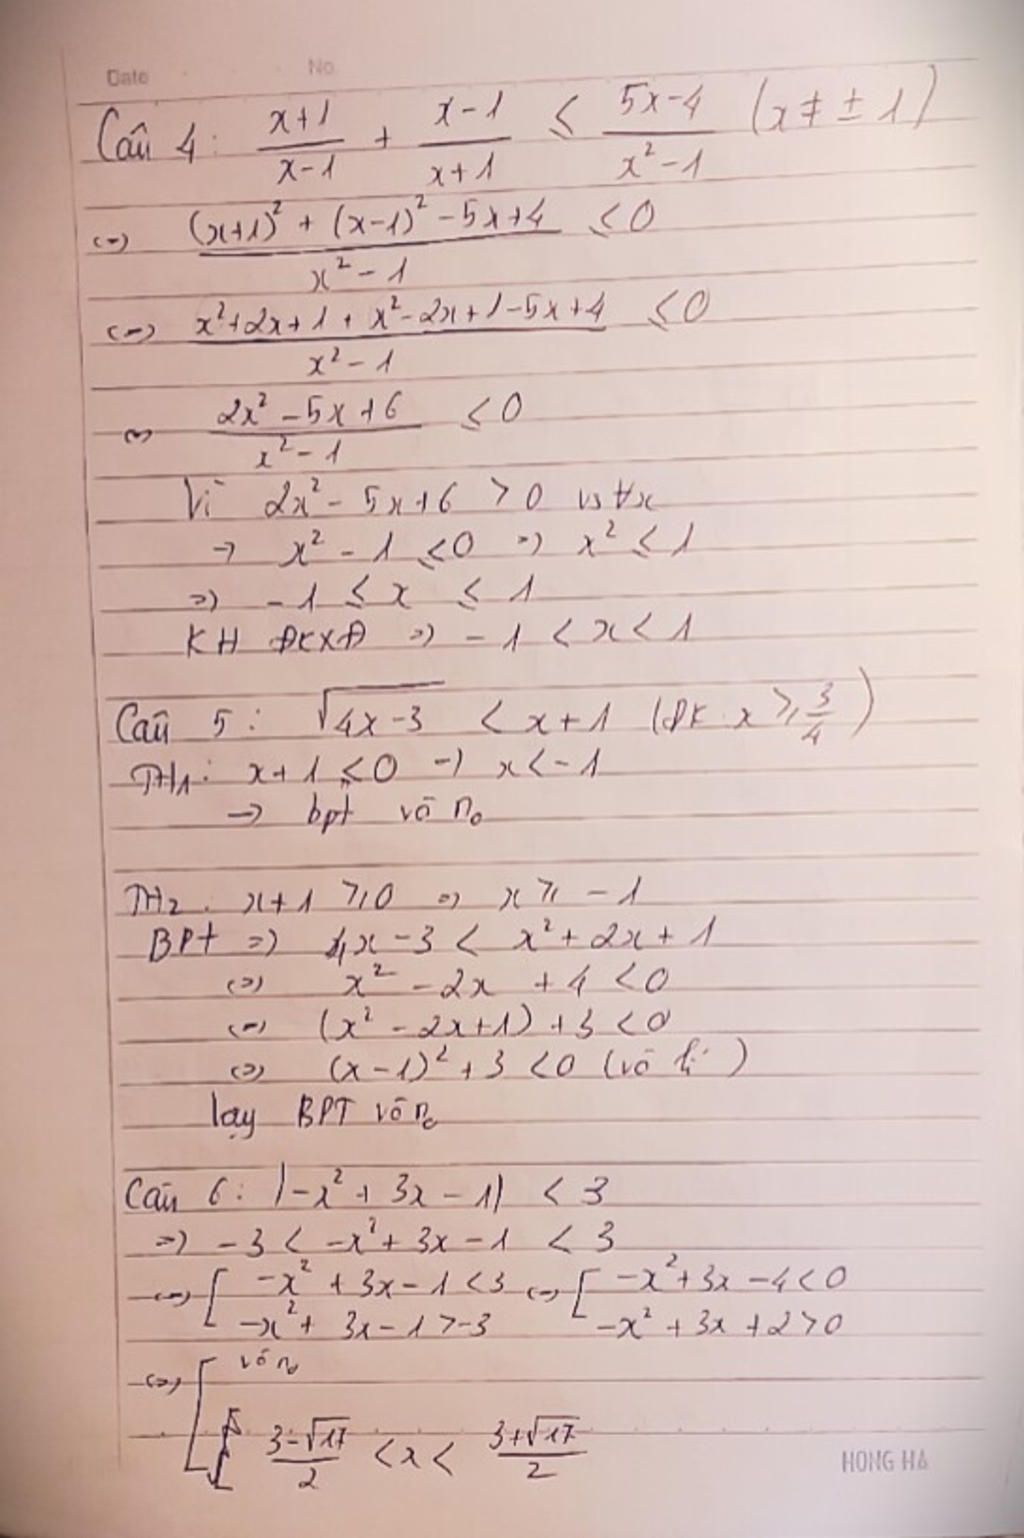 Date No.
Câu 4: (x+1)/(x-1) + (x-1)/(x+1) ≤ (5x-4)/(x²-1) (x ≠ ± 1)
(=) ((x+1)² + (x-1)² - 5x+4)/(x²-1) ≤ 0
(=) (x²+2x+1+x²-2x+1-5x+4)/(x²-1) ≤ 0
(=) (2x²-5x+6)/(x²-1) ≤ 0
Vì 2x² - 5x+6 > 0 vs ∀x
→ x² - 1 ≤ 0 => x² ≤ 1
=> -1 ≤ x ≤ 1
KH ĐKXĐ => -1 < x < 1
Câu 5: √(4x-3) < x+1 (ĐK x ≥ 3/4)
TH1: x+1 ≤ 0 => x < -1
→ bpt vô n₀
TH2. x+1 ≥ 0 => x ≥ -1
BPt => 4x-3 < x²+2x+1
(=) x² - 2x + 4 < 0
(=) (x² - 2x+1) + 3 < 0
(=) (x-1)² + 3 < 0 (vô lí)
Vậy BPT vô n₀
Câu 6: |-x² + 3x - 1| < 3
=> -3 < -x² + 3x - 1 < 3
(=) [ -x² + 3x - 1 < 3 (=) [ -x²+3x - 4 < 0
-x² + 3x - 1 > -3 -x² + 3x + 2 > 0
(=) [ vô n₀
(3-√17)/2 < x < (3+√17)/2
HONG HA